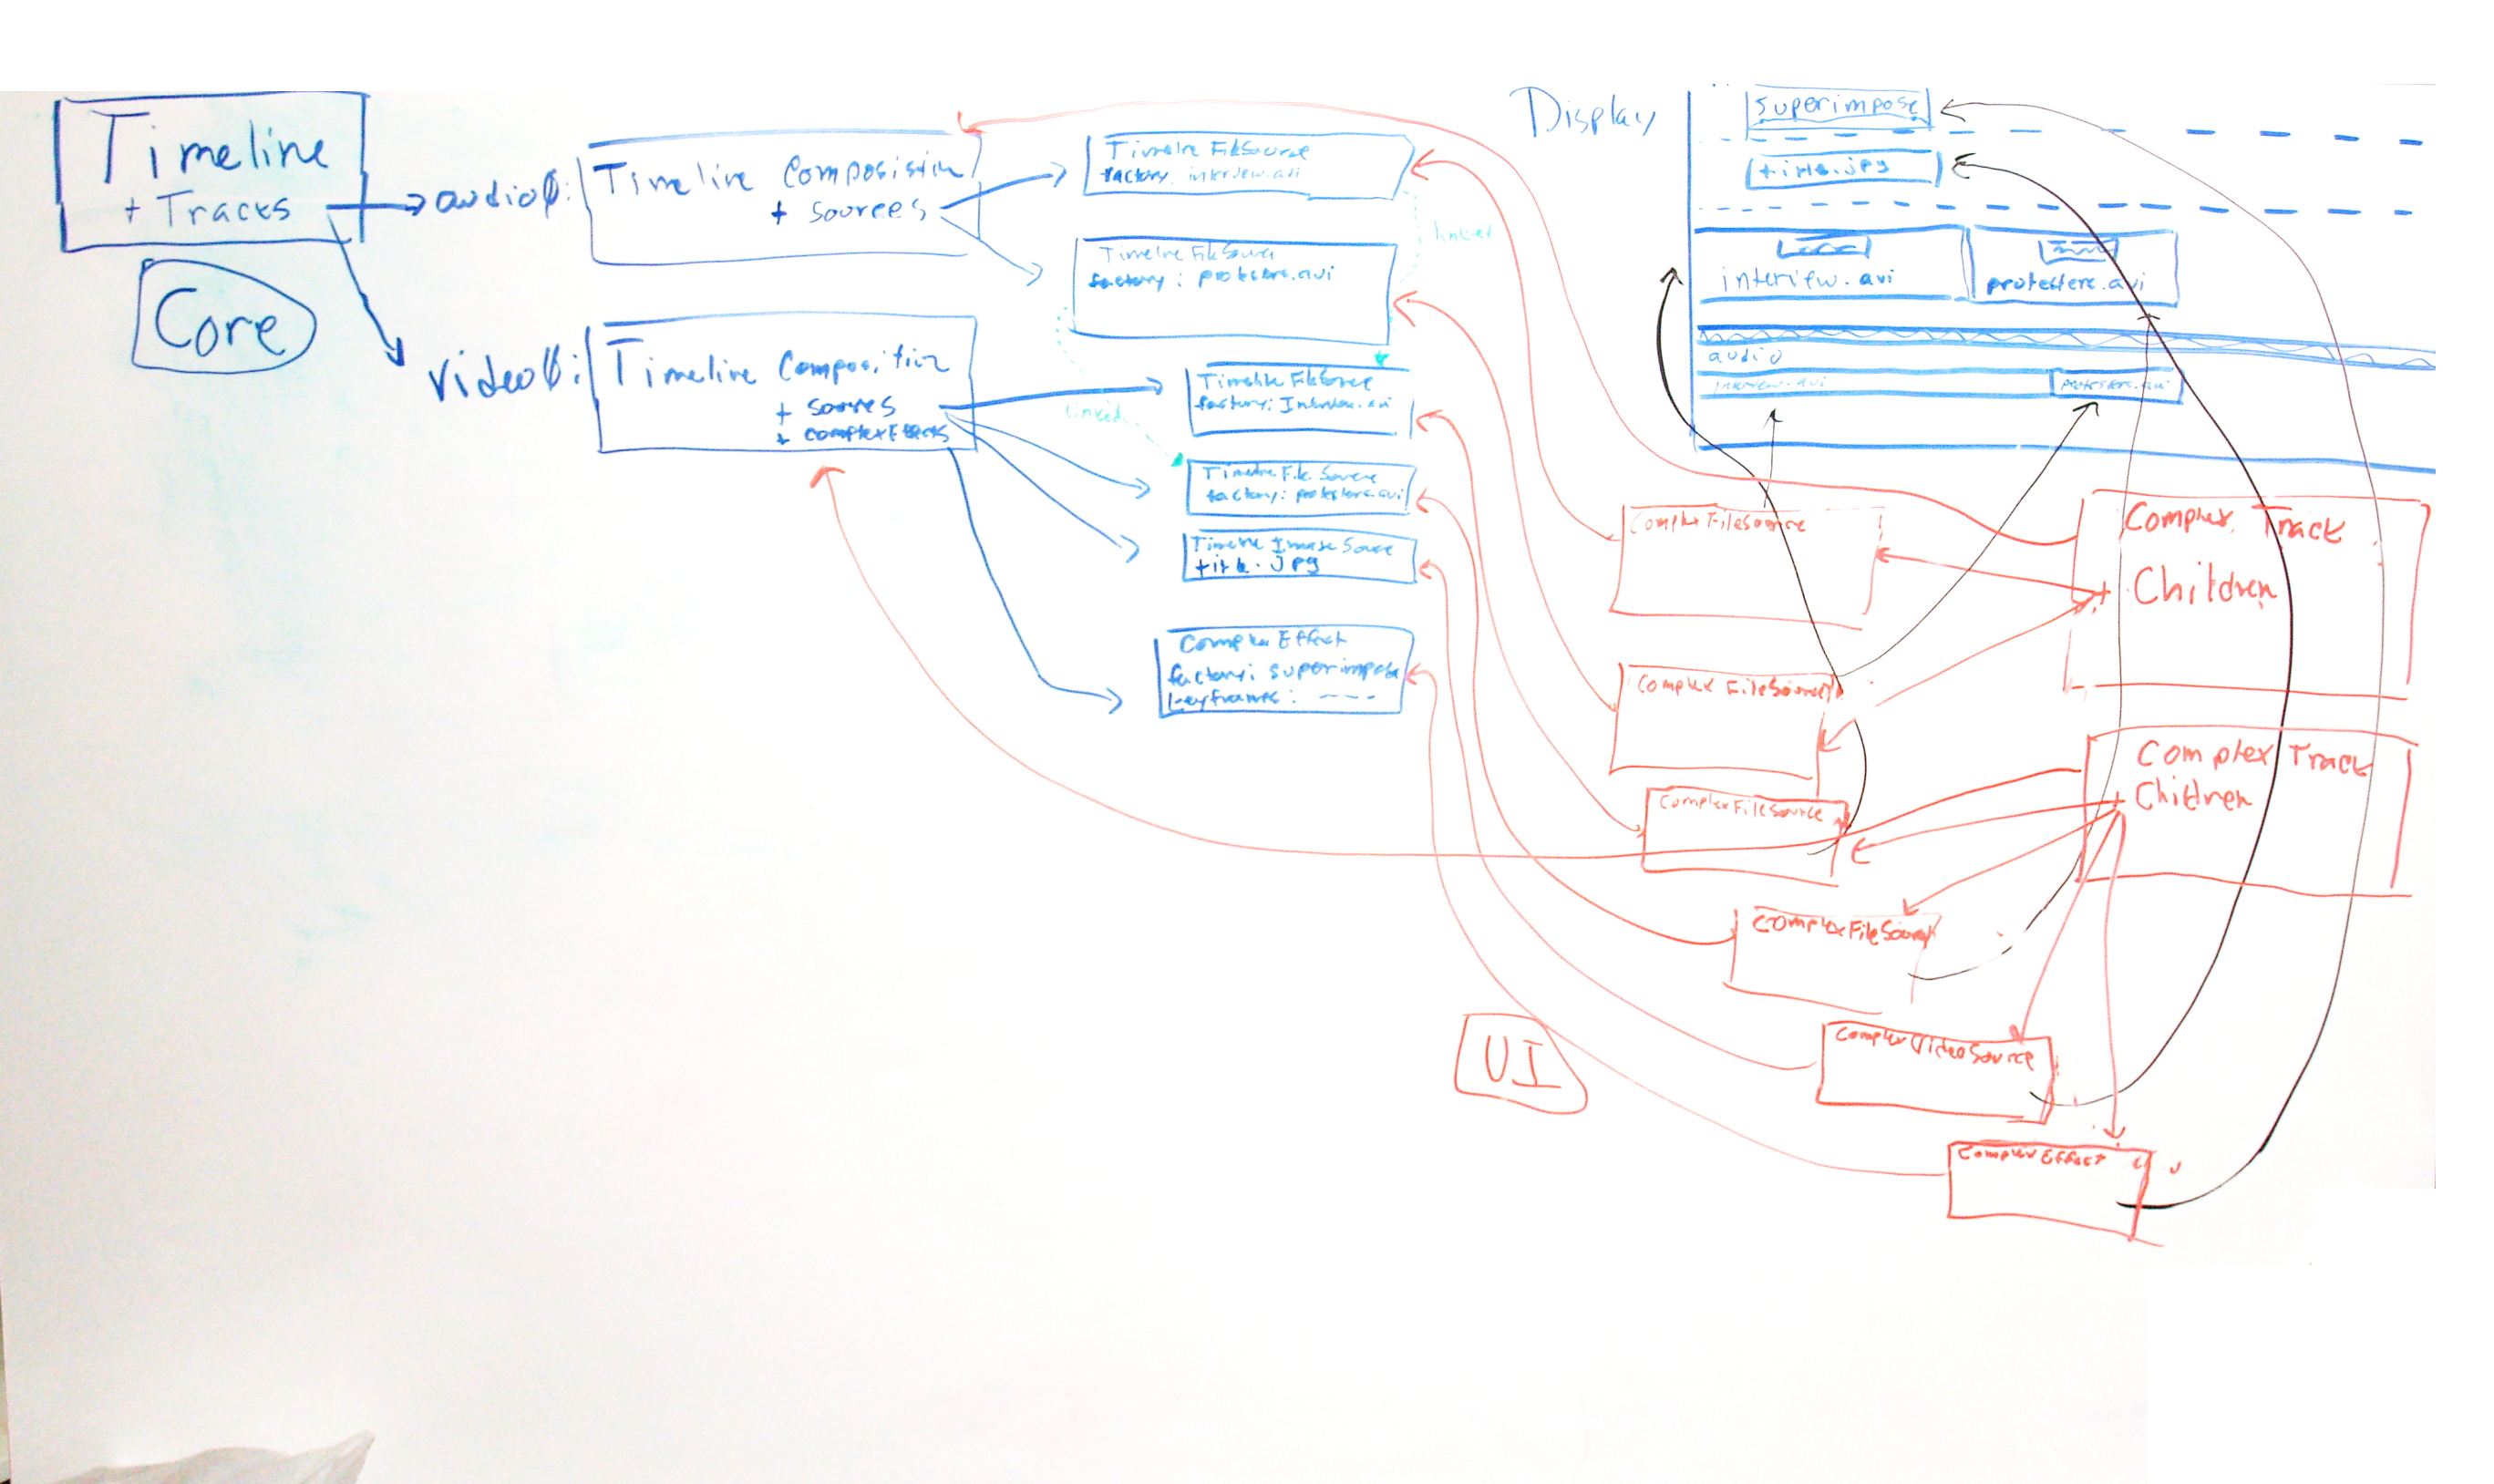 Timeline
+ Tracks
Core
audio0:
Timeline Composistion
+ sources
video0:
Timeline Composition
+ sources
+ complexEffects
Timeline FileSource
factory: interview.avi
Timeline FileSource
factory: protesters.avi
linked
linked
Timeline FileSource
factory: Interview.avi
Timeline File Source
factory: protesters.avi
Timeline Image Source
title.jpg
Complex Effect
factory: superimpose
keyframes: ----
Display
superimpose
title.jpg
interview.avi
protesters.avi
audio
interview.avi
protesters.avi
Complex FileSource
Complex FileSource
ComplexFileSource
ComplexFileSource
ComplexVideoSource
Complex Effect
Complex Track
+ Children
Complex Track
+ Children
UI